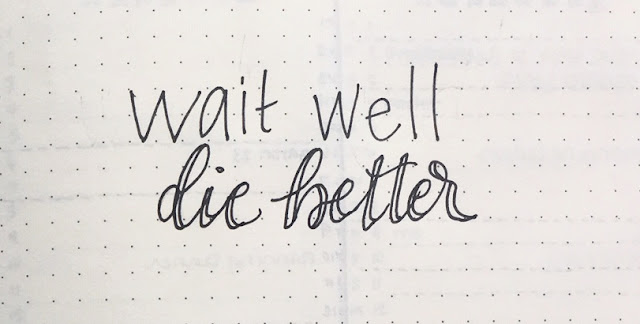 wait well
die better